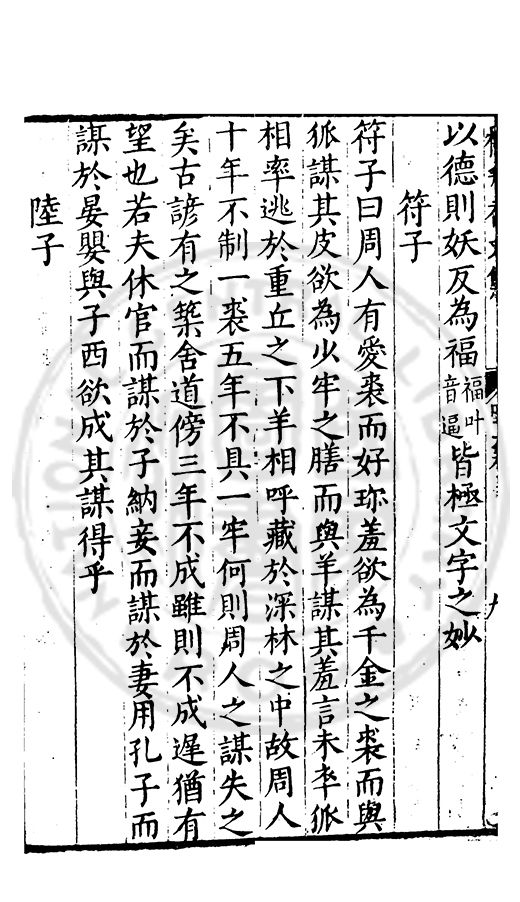 以德則妖反為福福叶音逼皆極文字之妙
符子
符子曰周人有愛裘而好珎羞欲為千金之裘而與
狐謀其皮欲為少牢之膳而與羊謀其羞言未卒狐
相率逃於重丘之下羊相呼藏於深林之中故周人
十年不制一裘五年不具一牢何則周人之謀失之
矣古諺有之築舍道傍三年不成雖則不成遲猶有
望也若夫休官而謀於子納妾而謀於妻用孔子而
謀於晏嬰與子西欲成其謀得乎
陸子